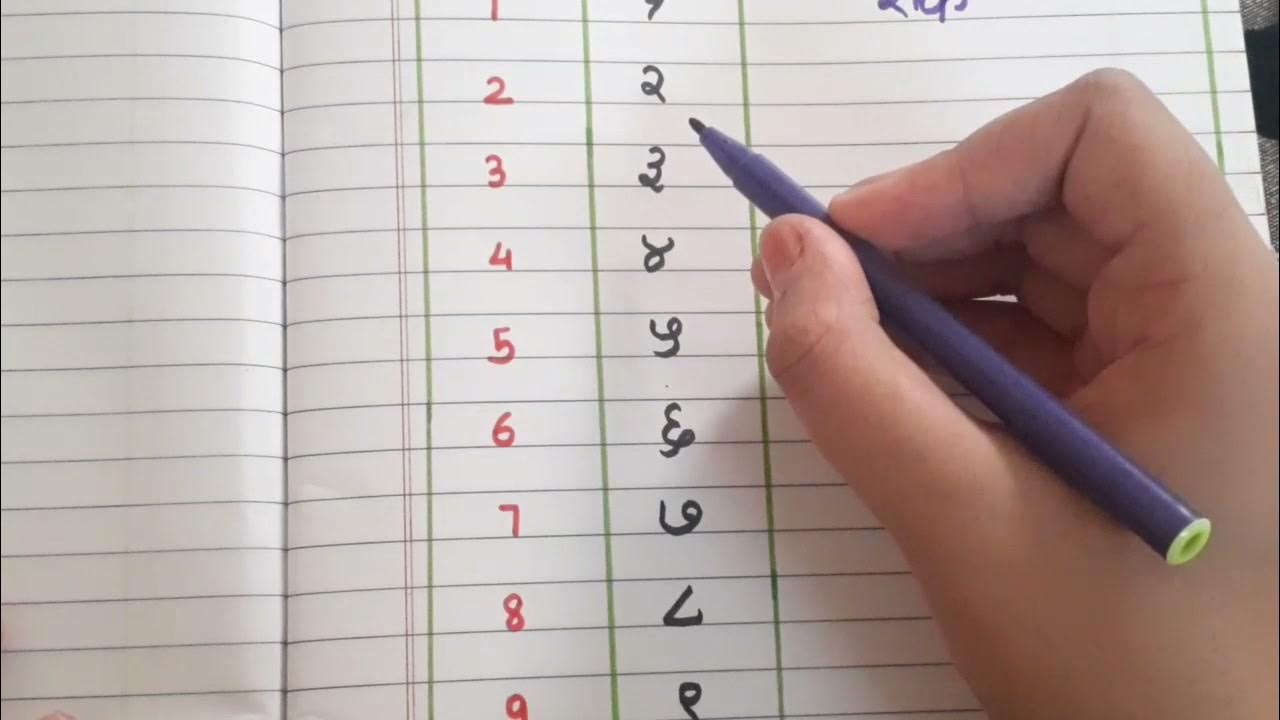 1 १
2 २
3 ३
4 ४
5 ५
6 ६
7 ७
8 ८
9 ९